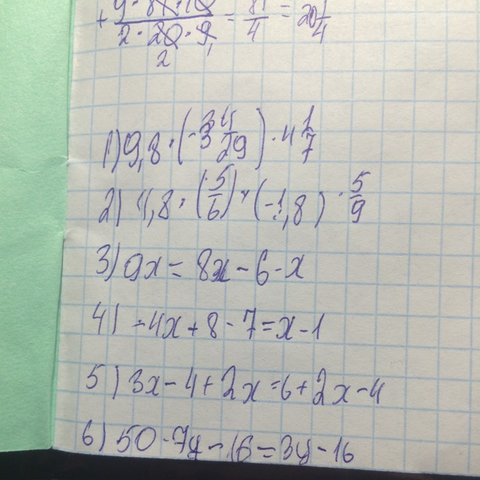 + 9·81·10 / 2·20·9 = 81/4 = 20 1/4
2
1) 9,8 · (-3 4/29) · 4 1/7
2) 4,8 · (5/6) · (-1,8) · 5/9
3) 9x = 8x - 6 - x
4) -4x + 8 - 7 = x - 1
5) 3x - 4 + 2x = 6 + 2x - 4
6) 50 - 7y - 16 = 3y - 16